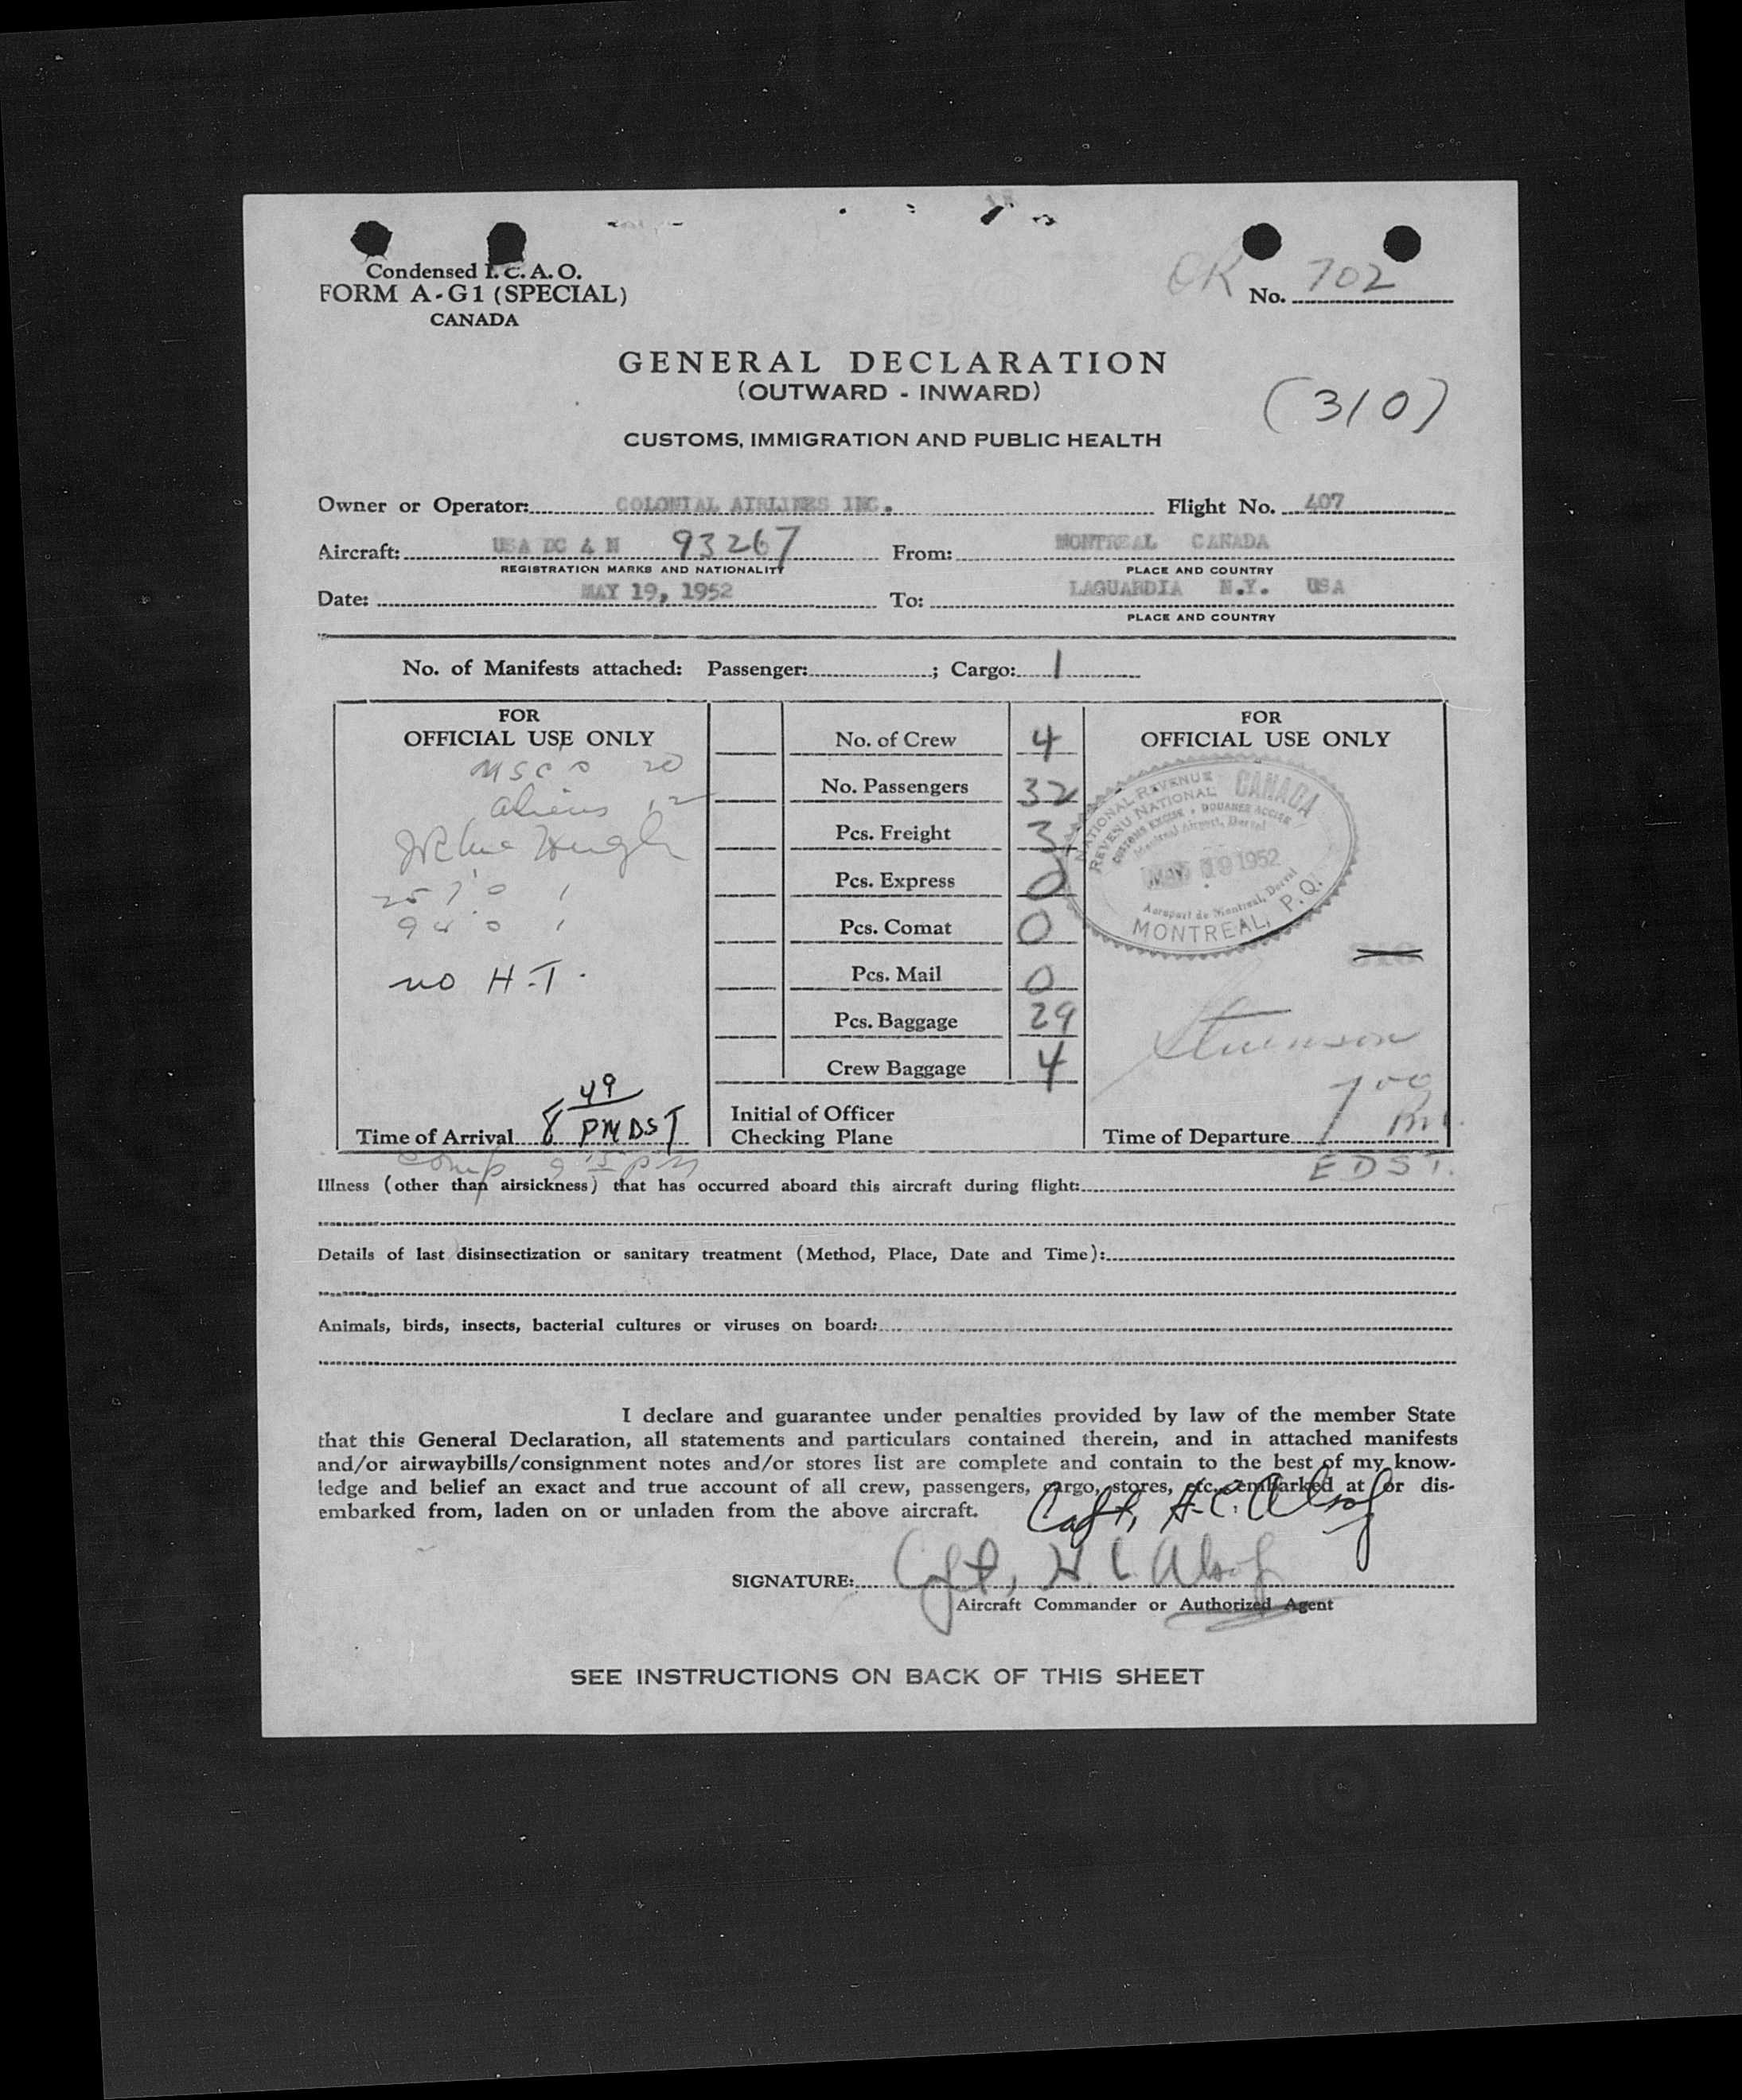 Condensed I. C. A. O.
FORM A-G1 (SPECIAL)
CANADA
OK No. 702
GENERAL DECLARATION
(OUTWARD - INWARD)
(310)
CUSTOMS, IMMIGRATION AND PUBLIC HEALTH
Owner or Operator: COLONIAL AIRLINES INC. Flight No. 407
Aircraft: USA DC 4 N 93267 From: MONTREAL CANADA
REGISTRATION MARKS AND NATIONALITY PLACE AND COUNTRY
Date: MAY 19, 1952 To: LAGUARDIA N.Y. USA
PLACE AND COUNTRY
No. of Manifests attached: Passenger: ; Cargo: 1
FOR
OFFICIAL USE ONLY
20
aliens 12
no H.T.
Time of Arrival 8 49 PM DST
No. of Crew 4
No. Passengers 32
Pcs. Freight 3
Pcs. Express 0
Pcs. Comat 0
Pcs. Mail 0
Pcs. Baggage 29
Crew Baggage 4
Initial of Officer
Checking Plane
FOR
OFFICIAL USE ONLY
NATIONAL REVENUE CANADA
REVENU NATIONAL
CUSTOMS EXCISE • DOUANES ACCISE
Montreal Airport, Dorval
MAY 19 1952
Aeroport de Montreal, Dorval
MONTREAL, P.Q.
310
Time of Departure 7 00 PM
EDST.
Comp 9 15 PM
Illness (other than airsickness) that has occurred aboard this aircraft during flight:
Details of last disinsectization or sanitary treatment (Method, Place, Date and Time):
Animals, birds, insects, bacterial cultures or viruses on board:
I declare and guarantee under penalties provided by law of the member State
that this General Declaration, all statements and particulars contained therein, and in attached manifests
and/or airwaybills/consignment notes and/or stores list are complete and contain to the best of my know-
ledge and belief an exact and true account of all crew, passengers, cargo, stores, etc. embarked at or dis-
embarked from, laden on or unladen from the above aircraft.
Capt, H.C. Alsop
SIGNATURE: Capt, H C Alsop
Aircraft Commander or Authorized Agent
SEE INSTRUCTIONS ON BACK OF THIS SHEET